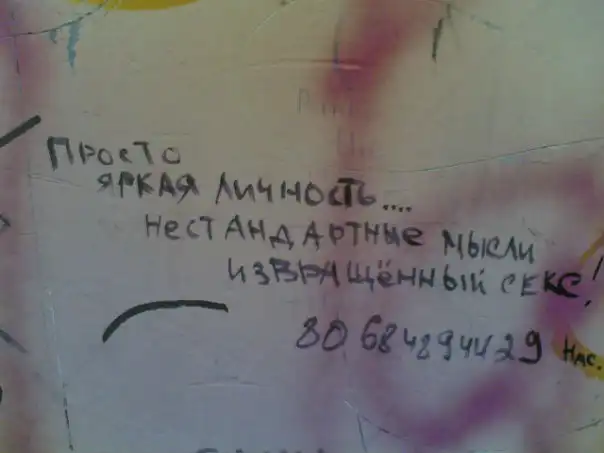 Просто
яркая личность....
нестандартные мысли
извращённый секс!
80684894429 Нас.